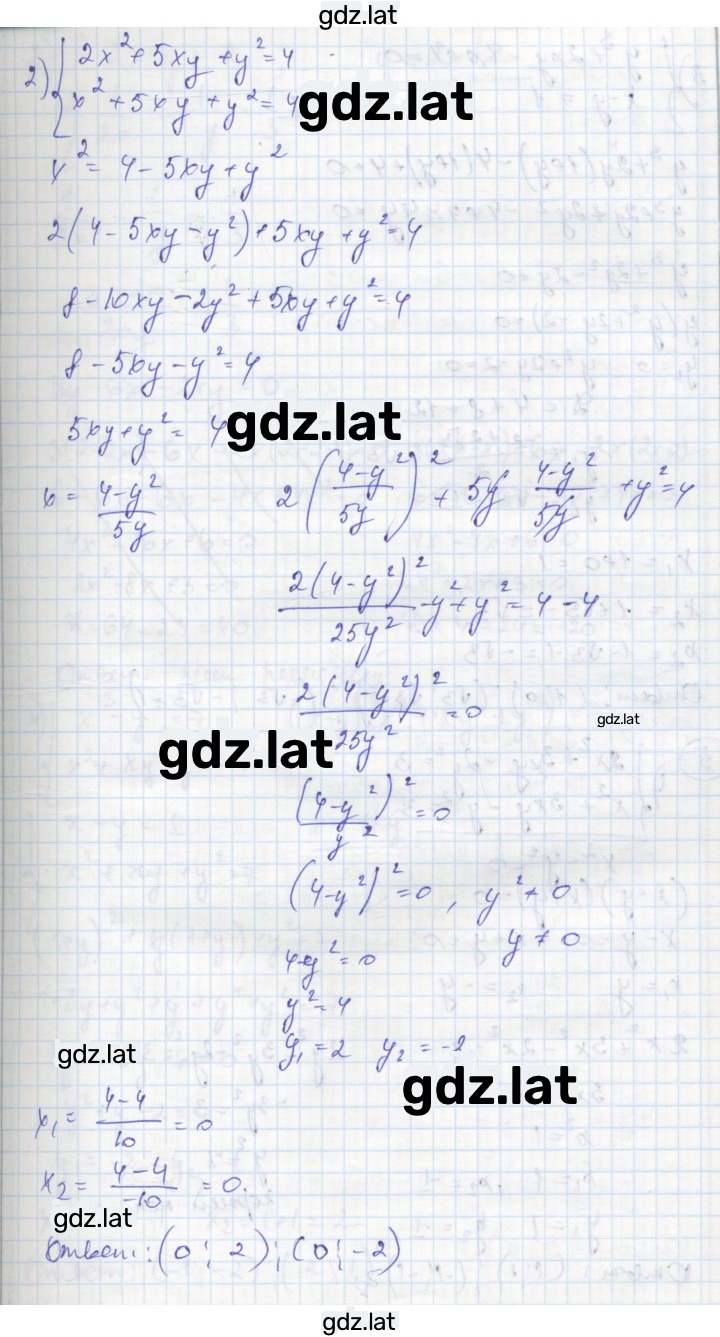 gdz.lat
2) { 2x² + 5xy + y² = 4
x² + 5xy + y² = 4
gdz.lat
x² = 4 - 5xy + y²
2(4 - 5xy - y²) + 5xy + y² = 4
8 - 10xy - 2y² + 5xy + y² = 4
8 - 5xy - y² = 4
5xy + y² = 4
gdz.lat
x = (4-y²)/(5y)   2((4-y²)/(5y))² + 5y (4-y²)/(5y) + y² = 4
2(4-y²)²/(25y²) - y² + y² = 4 - 4
2(4-y²)²/(25y²) = 0
gdz.lat
gdz.lat
(4-y²)²/y² = 0
(4-y²)² = 0, y² ≠ 0
y ≠ 0
4-y² = 0
y² = 4
y₁ = 2   y₂ = -2
gdz.lat
gdz.lat
x₁ = (4-4)/10 = 0
x₂ = (4-4)/(-10) = 0.
gdz.lat
Ответ: (0; 2); (0; -2)
gdz.lat